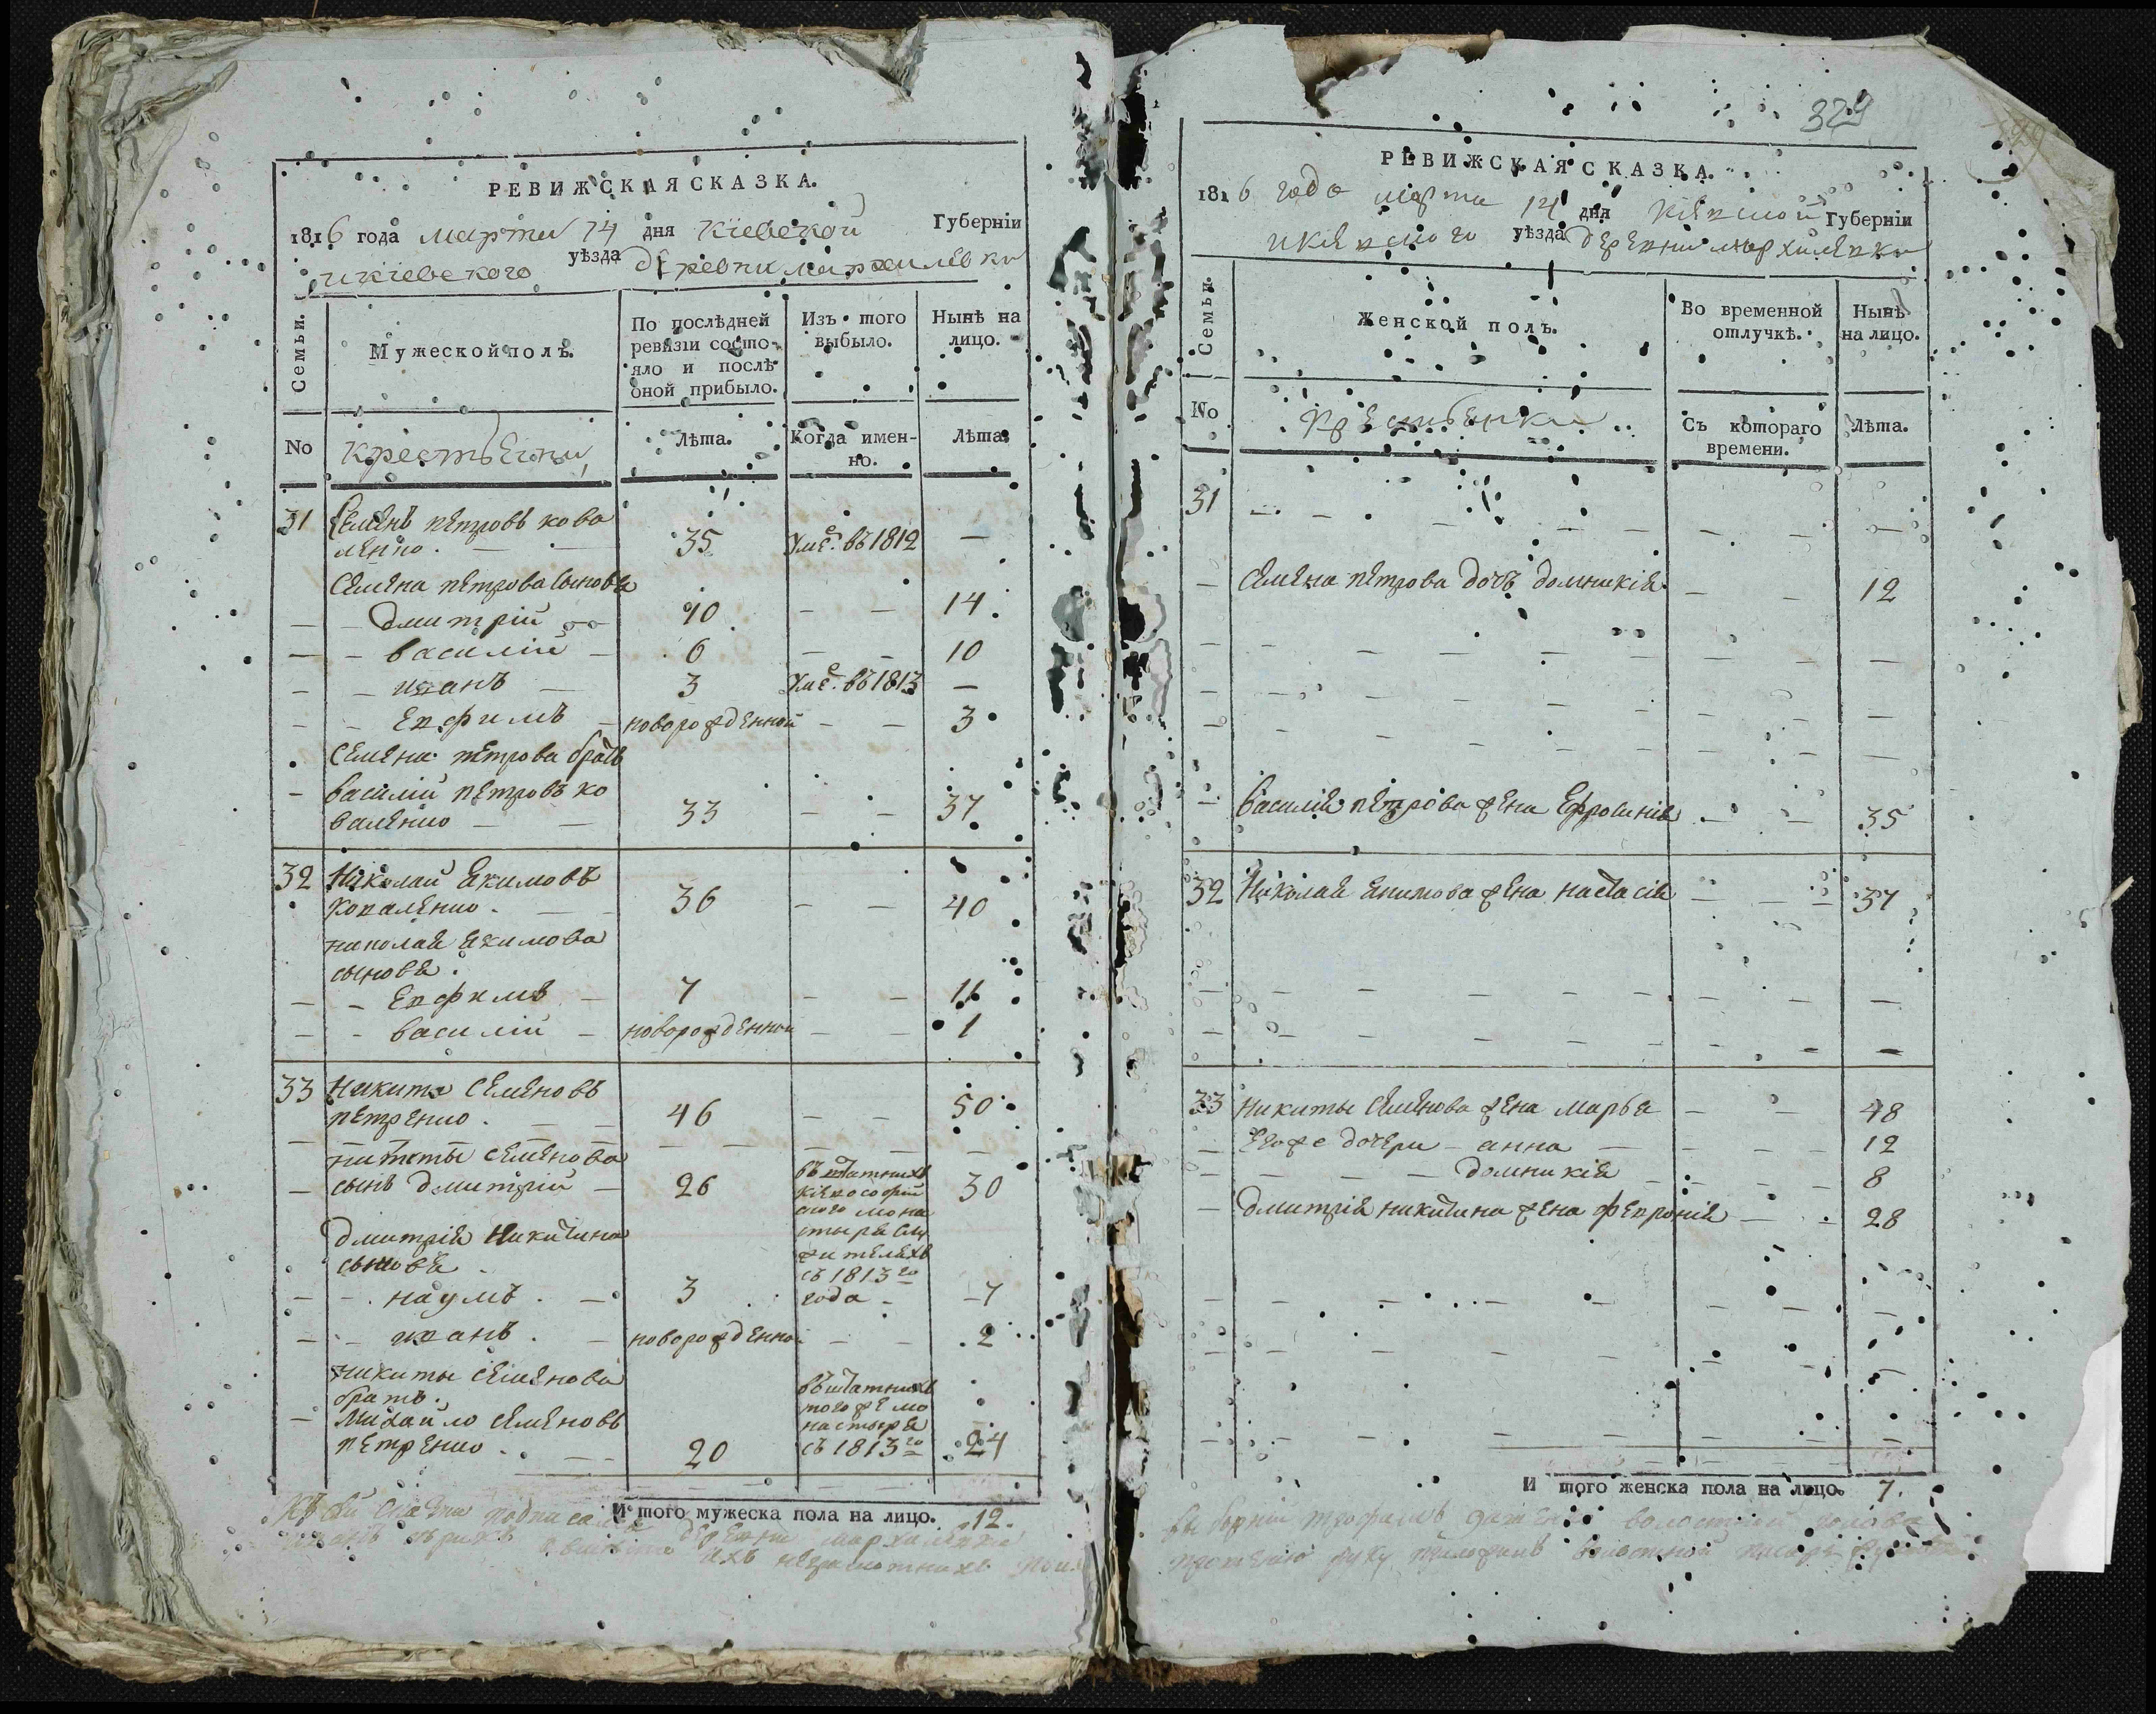 РЕВИЖСКАЯ СКАЗКА.
1816 года марта 14 дня Кіевской Губерніи
и кіевского уѣзда деревни мархалевки
Семьи.
Мужеской полъ.
По послѣдней ревизіи состояло и послѣ оной прибыло.
Изъ того выбыло.
Нынѣ на лицо.
No
крестьяни
Лѣта.
Когда именно.
Лѣта.
31 Семенъ петровъ кова
ленко. 35 Уме. въ 1812 —
Семена петрова сыновья
— Дмитрій 10 — — 14
— — василій — 6 — — 10
— — иванъ — 3 Уме. въ 1813 —
— — Евфимъ — новорожденной — — 3
Семена петрова братъ
— василій петровъ ко
валенко — — 33 — — 37
32 Николай Якимовъ
коваленко. — — 36 — — 40
николая якимова
сыновя.
— — Евфимъ — 7 — — 11
— — василій — новорожденной — — 1
33 Никита Семеновъ
петренко. — — 46 — — 50
никиты семенова
— сынъ дмитрій — 26 въ штатныхъ 30
кіевософій
ского мона
стыря слу
жителяхъ
съ 1813го
года
Дмитрія Никитина
сыновя.
— — наумъ. — 3 — 7
— — иванъ. — новорожденно — — 2
никиты семенова
братъ.
— Михайло семеновъ
петренко. — — 20 24
въ штатныхъ
того же мо
настыря
съ 1813го
И того мужеска пола на лицо. 12.
329
РЕВИЖСКАЯ СКАЗКА.
1816 года марта 14 дня кіевской Губерніи
и кіевского уѣзда деревни мархалевки
Семьи.
Женской полъ.
Во временной отлучкѣ.
Нынѣ на лицо.
No
крестьянки
Съ котораго времени.
Лѣта.
31 — — — — — — —
— Семена петрова дочь домникія — — 12
— Василія петрова жена Ефросинія — — 35
32 Николая якимова жена настасія — — 37
33 Никиты семенова жена марья — — 48
— Егоже дочери — анна — — 12
— — домникія — — 8
— Дмитрія никитина жена февронія — — 28
И того женска пола на лицо. 7.